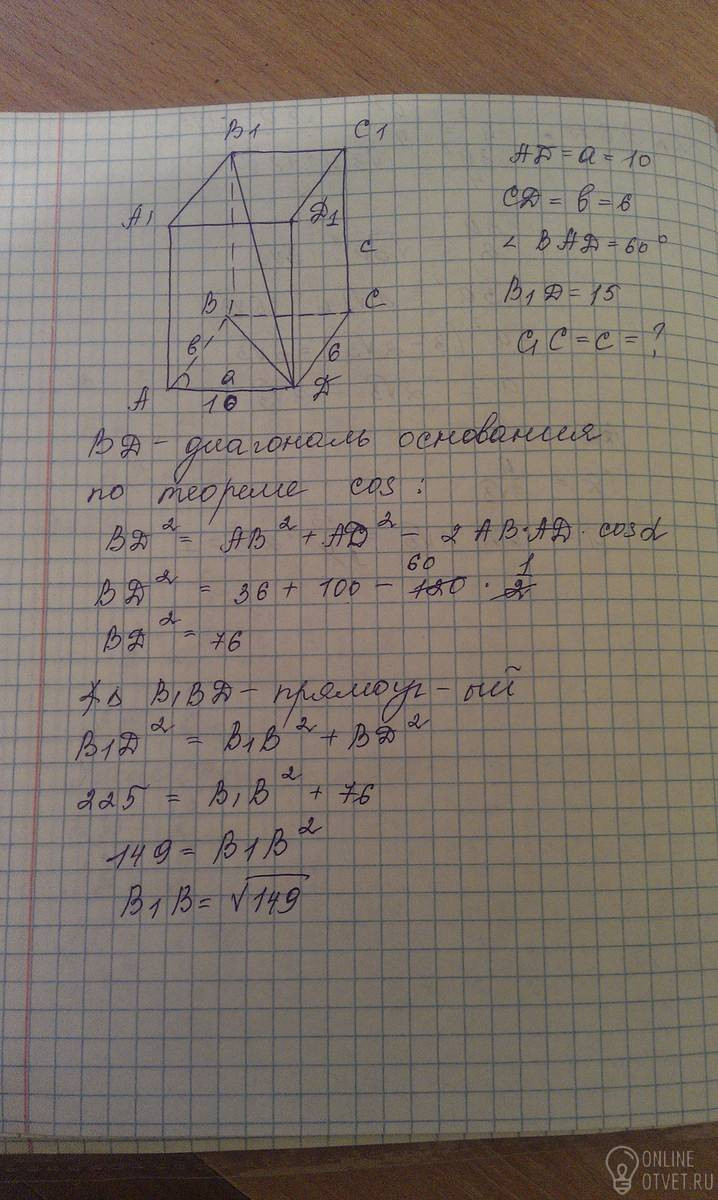 B1 C1
A1 Д1
c
B C
в 6
a
A 10 Д
АД = a = 10
СД = в = 6
∠ BAД = 60°
B1Д = 15
C1C = c = ?
BД - диагональ основания
по теореме cos :
BД² = AB² + AД² - 2 AB·AД · cosα
BД² = 36 + 100 - 120 60 · 1/2
BД² = 76
Δ B1BД - прямоуг-ый
B1Д² = B1B² + BД²
225 = B1B² + 76
149 = B1B²
B1B = √149
ONLINE
OTVET.RU